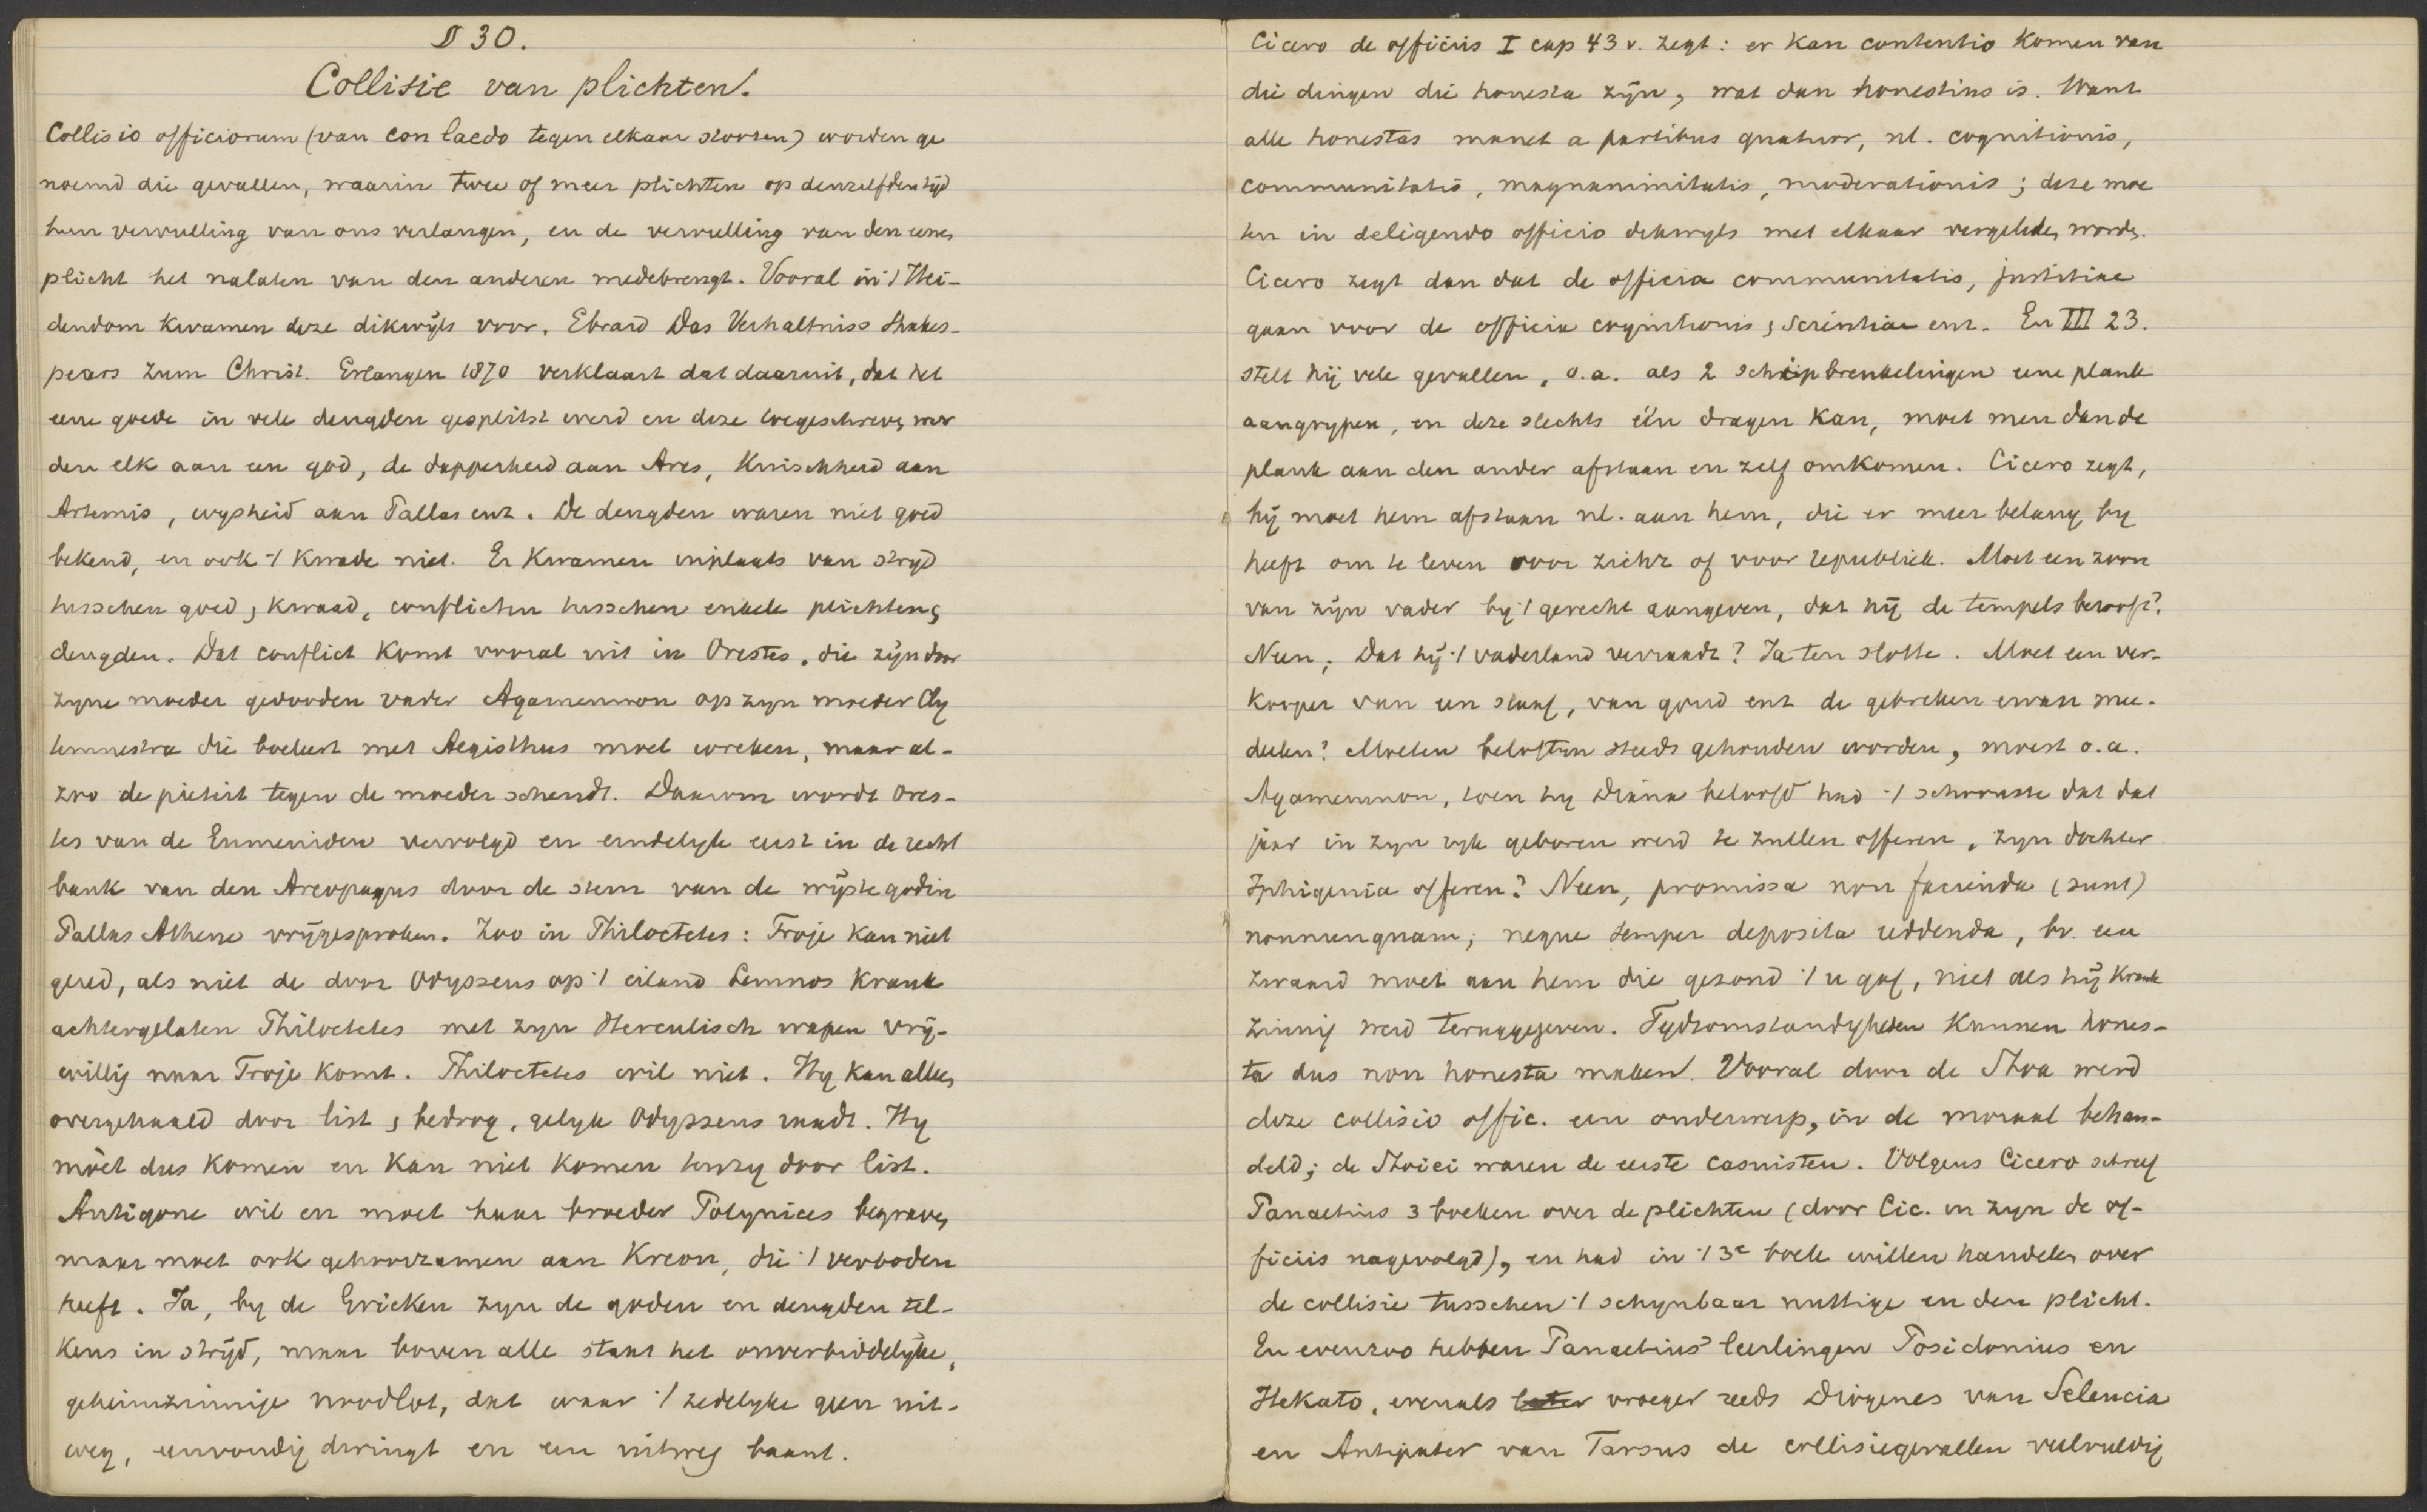 § 30.
Collisie van plichten.
Collisio officiorum (van con laedo tegen elkaar stooten) worden ge
noemd die gevallen, waarin twee of meer plichten op denzelfden tijd
hun vervulling van ons verlangen, en de vervulling van den eenen
plicht het nalaten van den anderen medebrengt. Vooral in 't Hei-
dendom kwamen deze dikwijls voor. Ebrard Das Verhaltniss Shakes-
pears zum Christ. Erlangen 1870 verklaart dat daaruit, dat het
eene goede in vele deugden gesplitst werd en deze toegeschreven wer
den elk aan een god, de dapperheid aan Ares, Kuischheid aan
Artemis, wysheid aan Pallas enz. De deugden waren niet goed
bekend, en ook 't kwade niet. Er kwamen inplaats van stryd
tusschen goed, kwaad, conflicten tusschen enkele plichten,
deugden. Dat conflict komt vooral uit in Orestes, die zijn door
zyne moeder gedooden vader Agamemnon op zyn moeder Cly
temnestra die boeleert met Aegisthus moet wreken, maar al-
zoo de pieteit tegen de moeder schendt. Daarom wordt Ores-
tes van de Eumeniden vervolgd en eindelyk eerst in de recht
bank van den Areopagus door de stem van de wijste godin
Pallas Athene vrijgesproken. Zoo in Philoctetes: Troje kan niet
gered, als niet de door Odysseus op 't eiland Lemnos krank
achtergelaten Philoctetes met zyn Herculisch wapen vrij-
willig naar Troje komt. Philoctetes wil niet. Hy kan alleen
overgehaald door list, bedrog, gelyk Odysseus raadt. Hy
mòet dus komen en kan niet komen tenzy door list.
Antigone wil en moet haar broeder Polynices begraven,
maar moet ook gehoorzamen aan Kreon, die 't verboden
heeft. Ja, by de Grieken zyn de goden en deugden tel-
kens in strijd, maar boven alle staat het onverbiddelijke,
geheimzinnige noodlot, dat waar 't zedelyke geen uit-
weg, eenvoudig dwingt en een uitweg baant.
Cicero de officiis I cap 43 v. zegt: er kan contentio komen van
die dingen die honesta zijn, wat dan honestius is. Want
alle honestas manet a partibus quatuor, nl. cognitionis,
communitatis, magnanimitatis, moderationis; deze moe
ten in deligendo officio dikwyls met elkaar vergeleken worden.
Cicero zegt dan dat de officia communitatis, justitiae
gaan voor de officia cognitionis, scientiae enz. En III 23.
stelt hij vele gevallen, o.a. als 2 schipbreukelingen eene plank
aangrypen, en deze slechts één dragen kan, moet men dan de
plank aan den ander afstaan en zelf omkomen. Cicero zegt,
hij moet hem afstaan nl. aan hem, die er meer belang by
heeft om te leven voor zichz of voor republiek. Moet een zoon
van zijn vader by 't gerecht aangeven, dat hij de tempels berooft?
Neen; Dat hij 't vaderland verraadt? Ja ten slotte. Moet een ver-
kooper van een slaaf, van goud enz de gebreken ervan mee-
deelen? Moeten beloften steeds gehouden worden, moest o.a.
Agamemnon, toen hy Diana beloofd had 't schoonste dat dat
jaar in zyn ryk geboren werd te zullen offeren, zyn dochter
Iphigenia offeren? Neen, promissa non facienda (sunt)
nonnunquam; neque semper deposita reddenda, bv. een
zwaard moet aan hem die gezond 't u gaf, niet als hij krank
zinnig werd teruggegeven. Tydsomstandigheden kunnen hones-
ta dus non honesta maken. Vooral door de Stoa werd
deze collisio offic. een onderwerp, in de moraal behan-
deld; de Stoici waren de eerste casuisten. Volgens Cicero schreef
Panaetius 3 boeken over de plichten (door Cic. in zyn de of-
ficiis nagevolgd), en had in 't 3e boek willen handelen over
de collisie tusschen 't schynbaar nuttige en den plicht.
En evenzoo hebben Panaetius' leerlingen Posidonius en
Hekato, evenals later vroeger reeds Diogenes van Seleucia
en Antipater van Tarsus de collisiegevallen veelvuldig